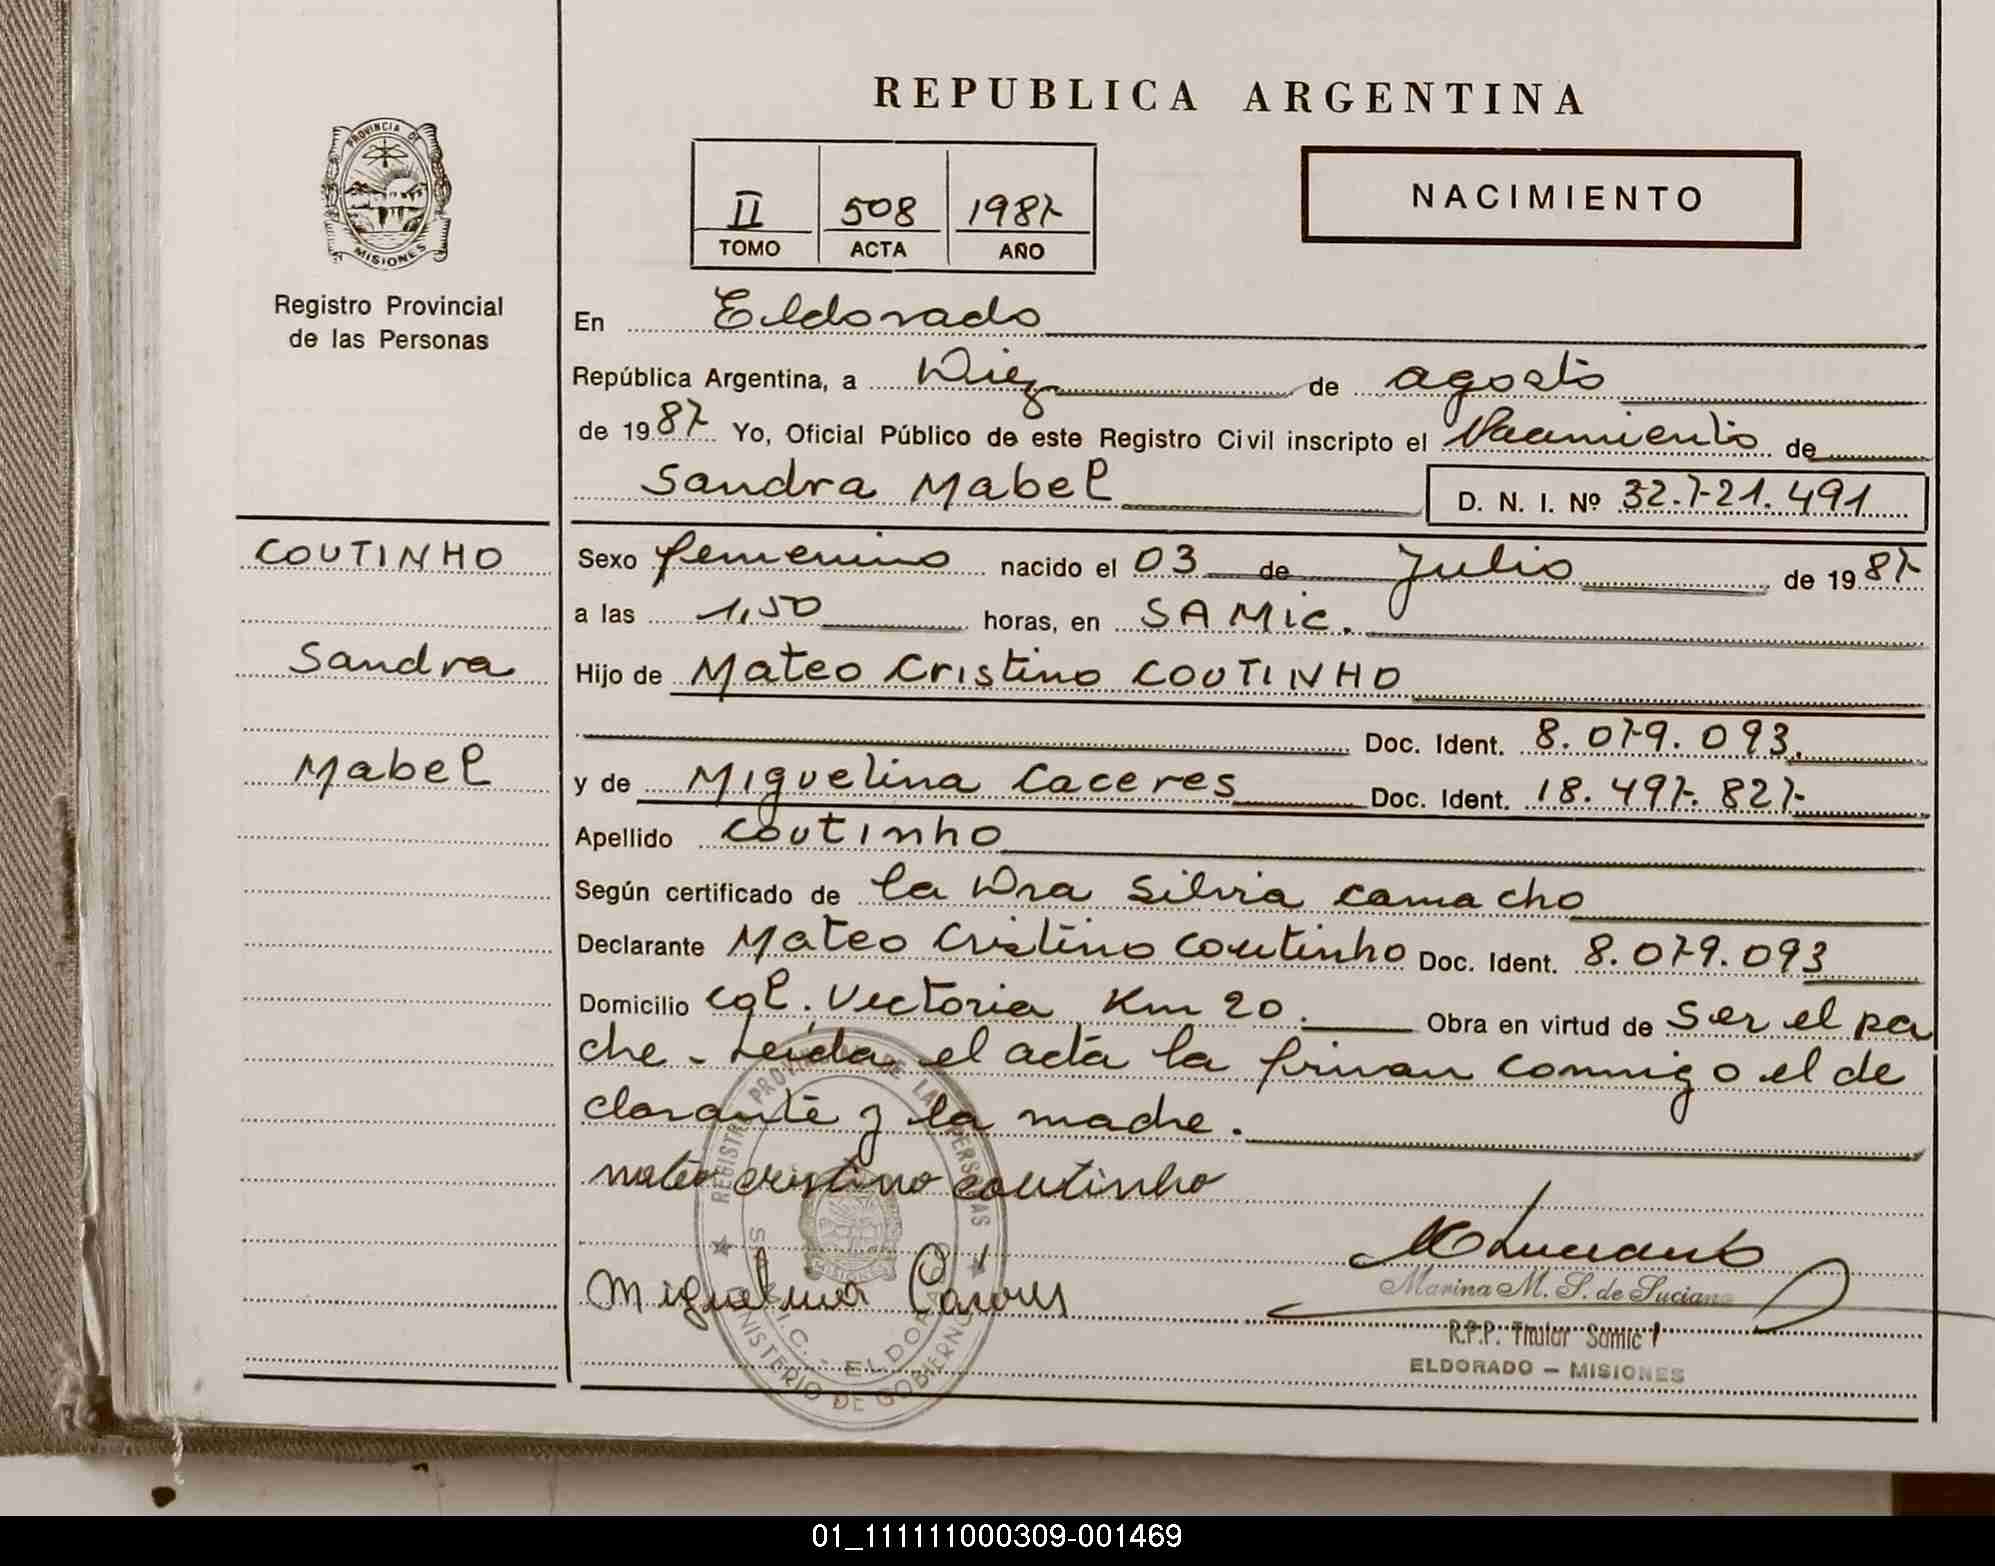 REPUBLICA ARGENTINA
PROVINCIA DE
MISIONES
Registro Provincial
de las Personas
II 508 1987
TOMO ACTA AÑO
NACIMIENTO
En Eldorado
República Argentina, a Diez de agosto
de 1987 Yo, Oficial Público de este Registro Civil inscripto el Nacimiento de
Sandra Mabel D. N. I. Nº 32.721.491
COUTINHO
Sandra
Mabel
Sexo femenino nacido el 03 de Julio de 1987
a las 1,50 horas, en SAMic.
Hijo de Mateo Cristino COUTINHO
Doc. Ident. 8.079.093.
y de Miguelina Caceres Doc. Ident. 18.497.827
Apellido Coutinho
Según certificado de la Dra Silvia Camacho
Declarante Mateo Cristino Coutinho Doc. Ident. 8.079.093
Domicilio Col. Victoria Km 20. Obra en virtud de Ser el pa
dre - Leida el acta la firman conmigo el de
clarante y la madre.
mateo cristino coutinho
Miguelina Caceres
Marina M. S. de Luciano
R.P.P. Titular Samic
ELDORADO - MISIONES
REGISTRO PROVINCIAL DE LAS PERSONAS
S.A.M.I.C. - ELDORADO
MINISTERIO DE GOBIERNO
MISIONES
01_111111000309-001469